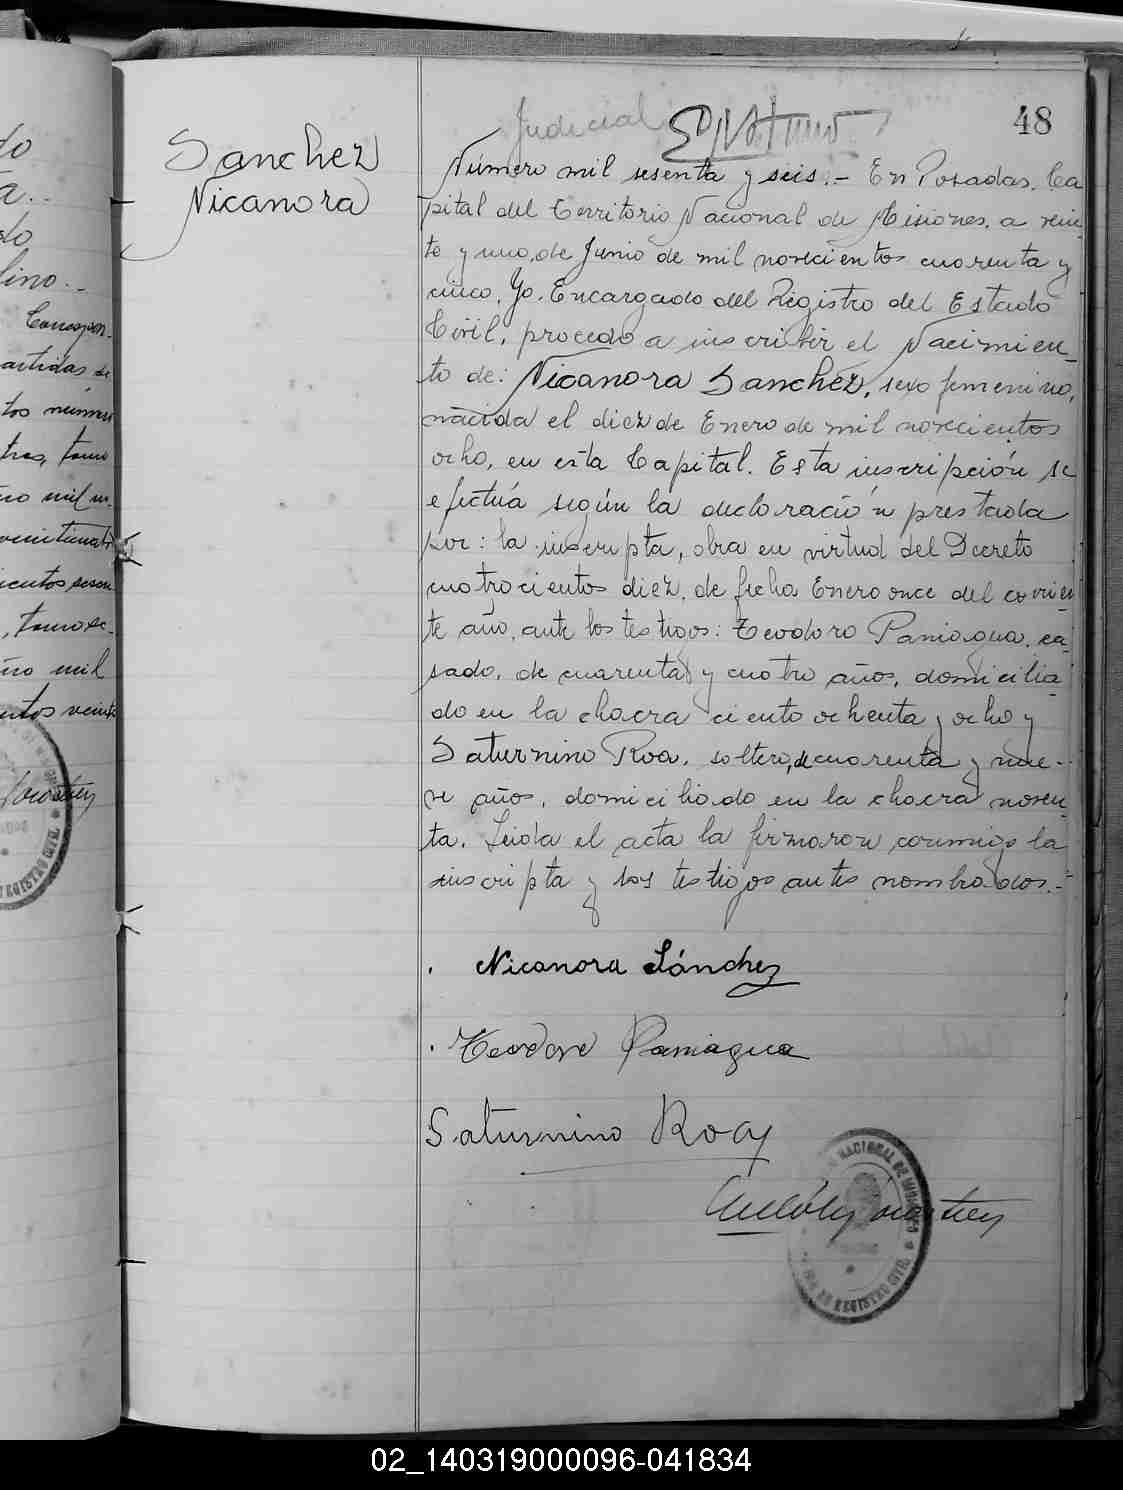 Judicial
48
Sanchez
Nicanora
Número mil sesenta y seis.- En Posadas, Ca
pital del Territorio Nacional de Misiones, a vein-
te y uno, de Junio de mil novecientos cuarenta y
cinco, Yo, Encargado del Registro del Estado
Civil, procedo a inscribir el Nacimien-
to de: Nicanora Sanchez, sexo femenino,
nacida el diez de Enero de mil novecientos
ocho, en esta Capital. Esta inscripción se
efectúa según la declaración prestada
por: la inscripta, obra en virtud del Decreto
cuatrocientos diez, de fecha Enero once del corrien
te año, ante los testigos: Teodoro Paniagua, ca-
sado, de cuarenta y cuatro años, domicilia-
do en la chacra ciento ochenta y ocho y
Saturnino Roa, soltero, de cuarenta y nue-
ve años, domiciliado en la chacra noven-
ta. Leida el acta la firmaron conmigo la
inscripta y los testigos antes nombrados.-
Nicanora Sánchez
Teodoro Paniagua
Saturnino Roa
NACIONAL DE MISIONES
REGISTRO CIVIL
lino..
Correspon-
artidas de
tos número
tres, tomo
no mil no-
veinticuatro
cientos sesen
, tomo se-
no mil
entos veinte
REGISTRO CIVIL
02_140319000096-041834